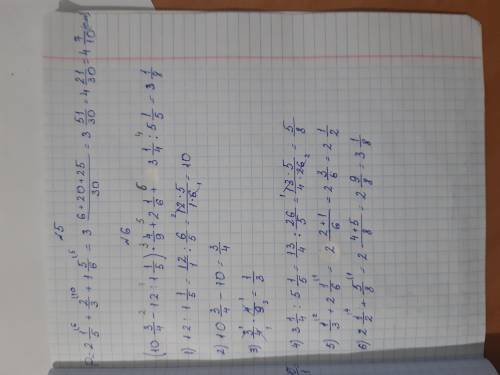 №5
P=2 1/5 + 2/3 + 1 5/6 = 3 (6+20+25)/30 = 3 51/30 = 4 21/30 = 4 7/10 (см)
№6
(10 3/4 - 12 : 1 1/5) · 4/9 + 2 1/6 + 3 1/4 : 5 1/5 = 3 1/8
1) 12 : 1 1/5 = 12/1 : 6/5 = (12·5)/(1·6) = 10
2) 10 3/4 - 10 = 3/4
3) 3/4 · 4/9 = 1/3
4) 3 1/4 : 5 1/5 = 13/4 : 26/5 = (13·5)/(4·26) = 5/8
5) 1/3 + 2 1/6 = 2 (2+1)/6 = 2 3/6 = 2 1/2
6) 2 1/2 + 5/8 = 2 (4+5)/8 = 2 9/8 = 3 1/8